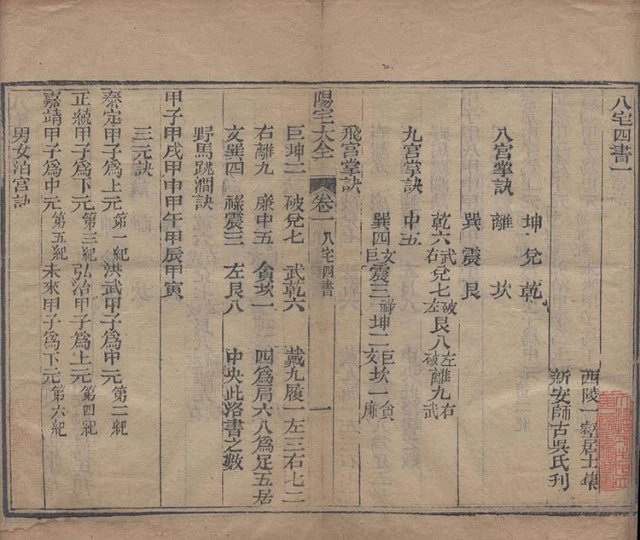 八宅四書一
西陵一壑居士集
新安師古吳氏刊
坤 兌 乾
八宮掌訣 離 坎
巽 震 艮
乾六武右兌七破左艮八左破離九右武
九宮掌訣 中五
巽四文巨震三祿坤二巨文坎一貪廉
飛宮掌訣
陽宅大全 卷一 八宅四書 一
巨坤二 破兌七 武乾六 戴九履一左三右七二
右離九 廉中五 貪坎一 四為肩六八為足五居
文巽四 祿震三 左艮八 中央此洛書之數
野馬跳澗訣
甲子甲戌甲申甲午甲辰甲寅
三元訣
泰定甲子為上元第一紀 洪武甲子為中元第二紀
正統甲子為下元第三紀 弘治甲子為上元第四紀
嘉靖甲子為中元第五紀 未來甲子為下元第六紀
男女泊宮訣